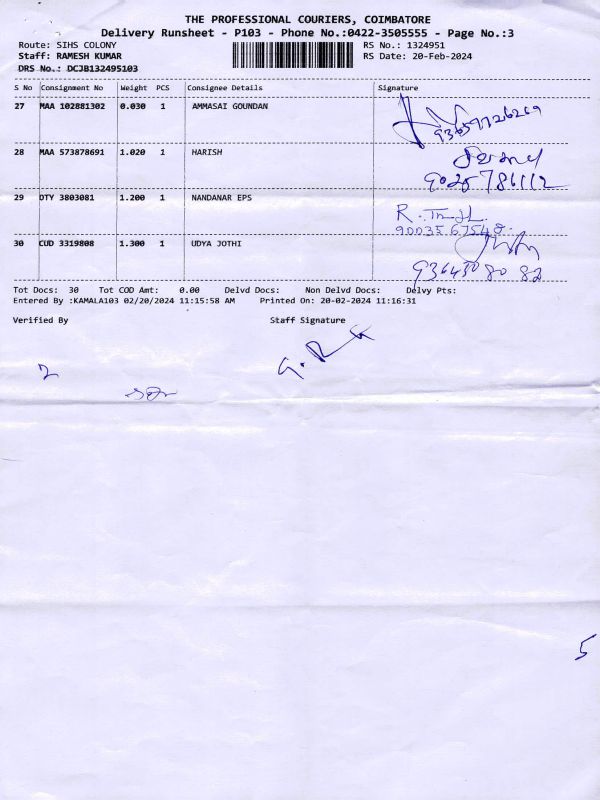 THE PROFESSIONAL COURIERS, COIMBATORE
Delivery Runsheet - P103 - Phone No.:0422-3505555 - Page No.:3
Route: SIHS COLONY RS No.: 1324951
Staff: RAMESH KUMAR RS Date: 20-Feb-2024
DRS No.: DCJB132495103
S No Consignment No Weight PCS Consignee Details Signature
27 MAA 102881302 0.030 1 AMMASAI GOUNDAN
28 MAA 573878691 1.020 1 HARISH
9025786112
29 DTY 3803081 1.200 1 NANDANAR EPS
30 CUD 3319808 1.300 1 UDYA JOTHI
Tot Docs: 30 Tot COD Amt: 0.00 Delvd Docs: Non Delvd Docs: Delvy Pts:
Entered By :KAMALA103 02/20/2024 11:15:58 AM Printed On: 20-02-2024 11:16:31
Verified By Staff Signature
2
5